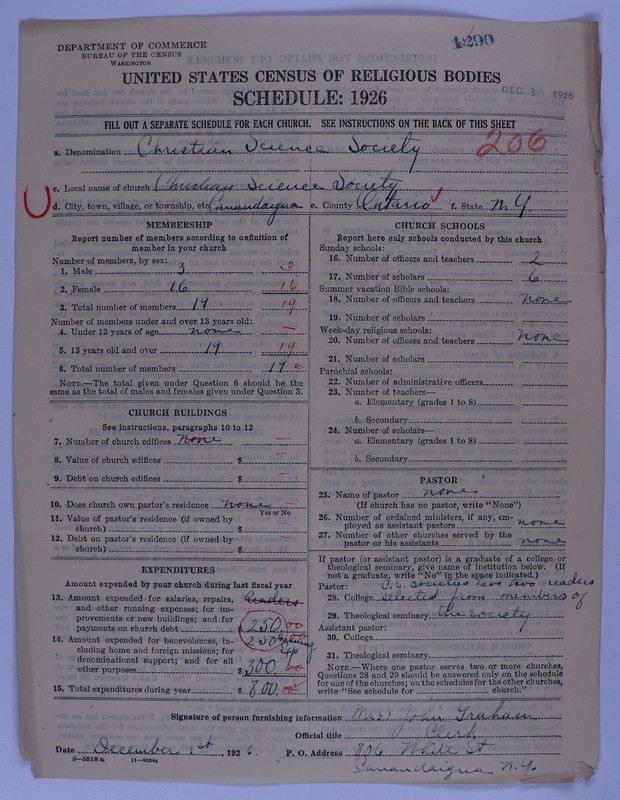 1290
DEPARTMENT OF COMMERCE
BUREAU OF THE CENSUS
WASHINGTON
UNITED STATES CENSUS OF RELIGIOUS BODIES
SCHEDULE: 1926
DEC 3 1926
FILL OUT A SEPARATE SCHEDULE FOR EACH CHURCH. SEE INSTRUCTIONS ON THE BACK OF THIS SHEET
206
a. Denomination Christian Science Society
c. Local name of church Christian Science Society
d. City, town, village, or township, etc. Canandaigua e. County Ontario f. State N.Y.
MEMBERSHIP
Report number of members according to definition of
member in your church
Number of members, by sex:
1. Male 3 3
2. Female 16 16
3. Total number of members 19 19
Number of members under and over 13 years old:
4. Under 13 years of age none —
5. 13 years old and over 19 19
6. Total number of members 19
NOTE.—The total given under Question 6 should be the
same as the total of males and females given under Question 3.
CHURCH BUILDINGS
See instructions, paragraphs 10 to 12
7. Number of church edifices None —
8. Value of church edifices $ —
9. Debt on church edifices $ —
10. Does church own pastor's residence none —
Yes or No
11. Value of pastor's residence (if owned by
church) $ —
12. Debt on pastor's residence (if owned by
church) $
EXPENDITURES
Amount expended by your church during last fiscal year
13. Amount expended for salaries, repairs, Readers
and other running expenses; for im-
provements or new buildings; and for
payments on church debt $ 250.00
14. Amount expended for benevolences, in- 250
cluding home and foreign missions; for
denominational support; and for all
other purposes $ 300.00
15. Total expenditures during year $ 800.00
CHURCH SCHOOLS
Report here only schools conducted by this church
Sunday schools:
16. Number of officers and teachers 2
17. Number of scholars 6
Summer vacation Bible schools:
18. Number of officers and teachers none
19. Number of scholars
Week-day religious schools:
20. Number of officers and teachers none
21. Number of scholars
Parochial schools:
22. Number of administrative officers
23. Number of teachers—
a. Elementary (grades 1 to 8)
b. Secondary
24. Number of scholars—
a. Elementary (grades 1 to 8)
b. Secondary
PASTOR
25. Name of pastor none
(If church has no pastor, write "None")
26. Number of ordained ministers, if any, em-
ployed as assistant pastors none
27. Number of other churches served by the
pastor or his assistants none
If pastor (or assistant pastor) is a graduate of a college or
theological seminary, give name of institution below. (If
not a graduate, write "No" in the space indicated.)
Pastor: C.S. Societies has two readers
28. College selected from members of
29. Theological seminary the society
Assistant pastor:
30. College
31. Theological seminary
NOTE.—Where one pastor serves two or more churches,
Questions 28 and 29 should be answered only on the schedule
for one of the churches; on the schedules for the other churches,
write "See schedule for church."
Signature of person furnishing information Miss John Graham
Official title Clerk
Date December 1st, 1926. P. O. Address 806 White St
3-5518 a 11-9054c Canandaigua N.Y.